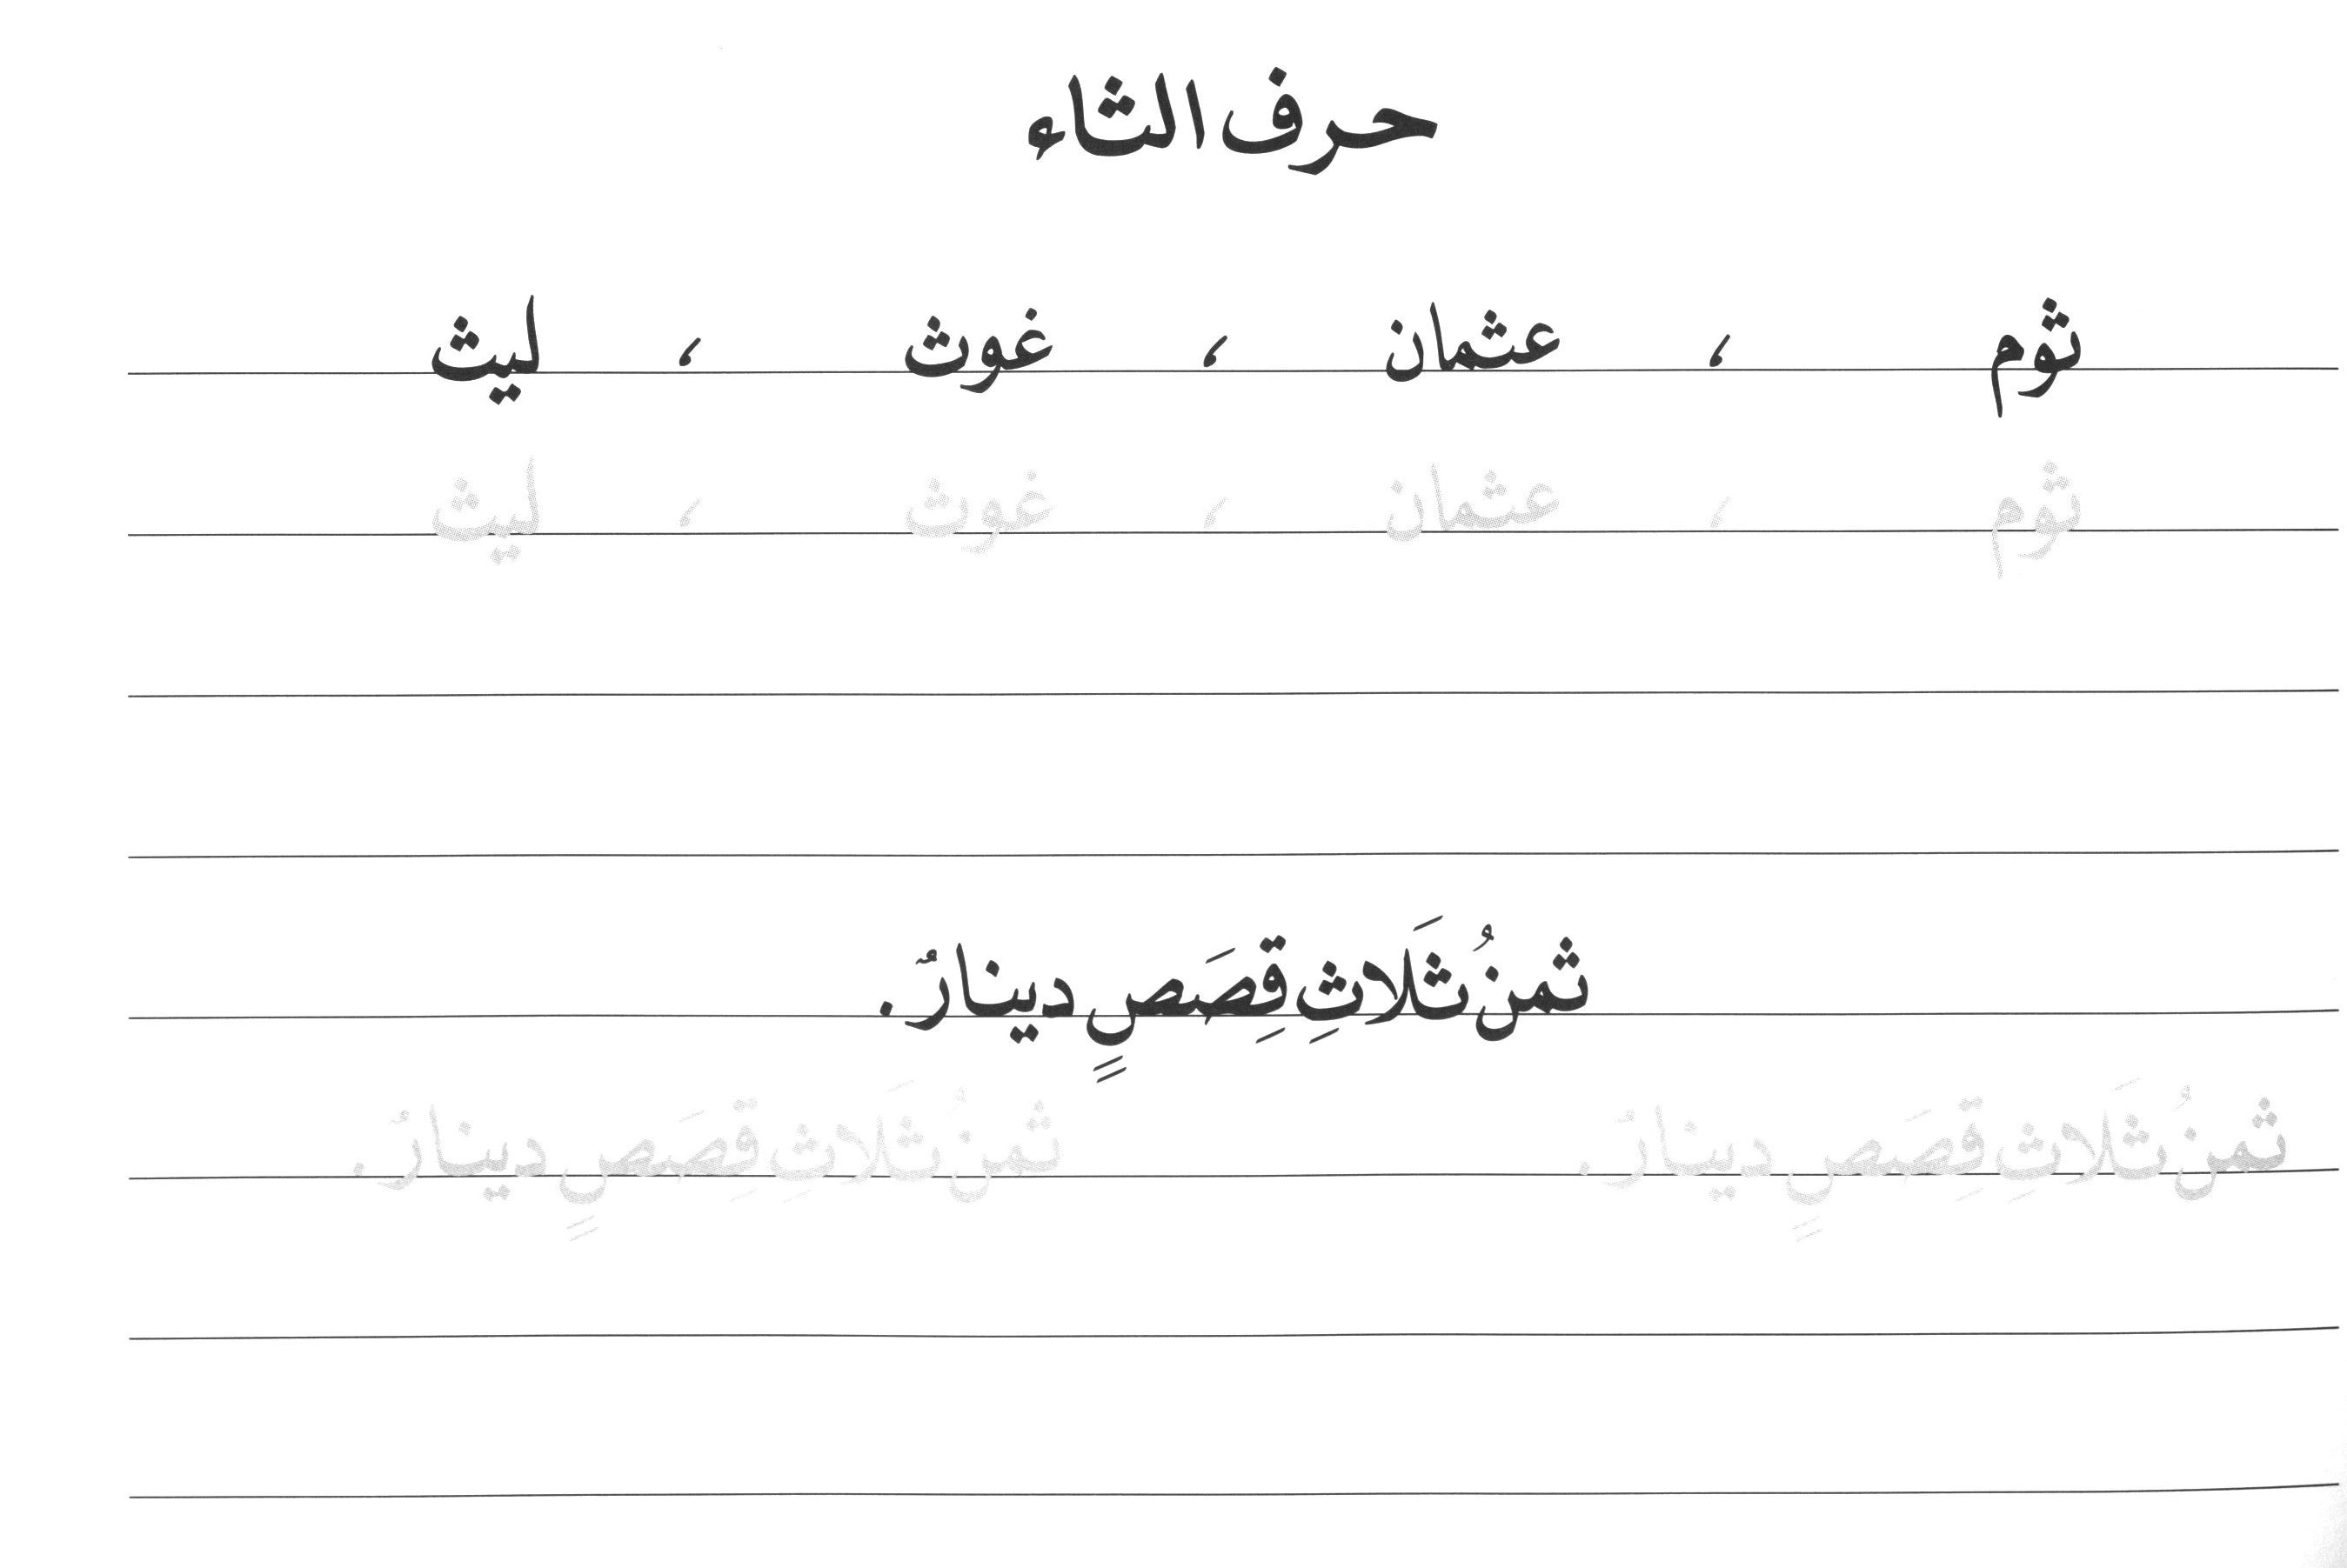 حرف الثاء
ثوم ، عثمان ، غوث ، ليث
ثوم ، عثمان ، غوث ، ليث
ثمنُ ثَلاثِ قِصَصٍ دينارٌ.
ثمنُ ثَلاثِ قِصَصٍ دينارٌ. ثمنُ ثَلاثِ قِصَصٍ دينارٌ.